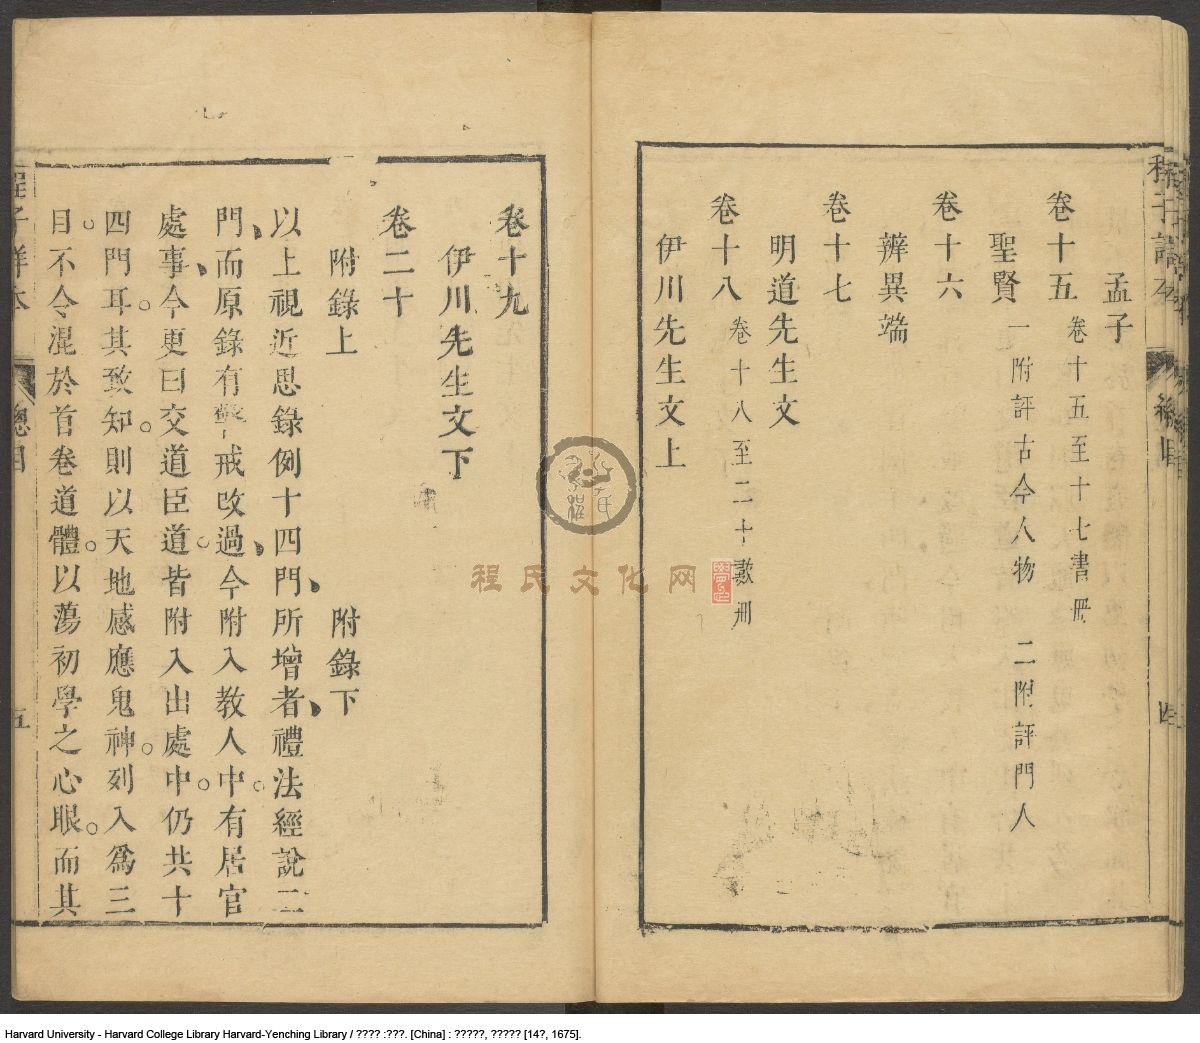 孟子
卷十五 卷十五至十七書冊
聖賢 一附評古今人物 二附評門人
卷十六
辨異端
卷十七
明道先生文
卷十八 卷十八至二十數冊
伊川先生文上
卷十九
伊川先生文下
卷二十
附錄上 附錄下
以上視近思錄例十四門所增者禮法經說二
門而原錄有警戒改過今附入教人中有居官
處事今更曰交道臣道皆附入出處中仍共十
四門耳其致知則以天地感應鬼神列入爲三
目不令混於首卷道體以蕩初學之心眼而其
總目
五
程氏文化网
Harvard University - Harvard College Library Harvard-Yenching Library / ???? :???. [China] : ?????, ????? [14?, 1675].